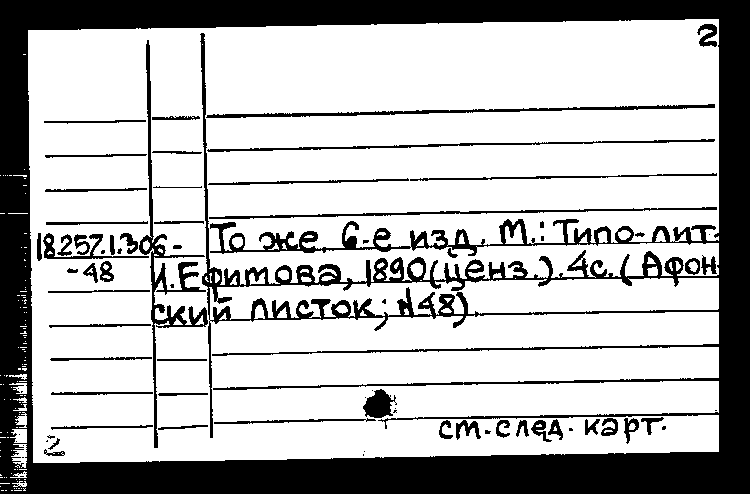 2
18.257.1.306- То же. 6-е изд. М.: Типо-лит.
-48 И.Ефимова, 1890(ценз.). 4с. (Афон-
ский листок; №48).
см. след. карт.
2